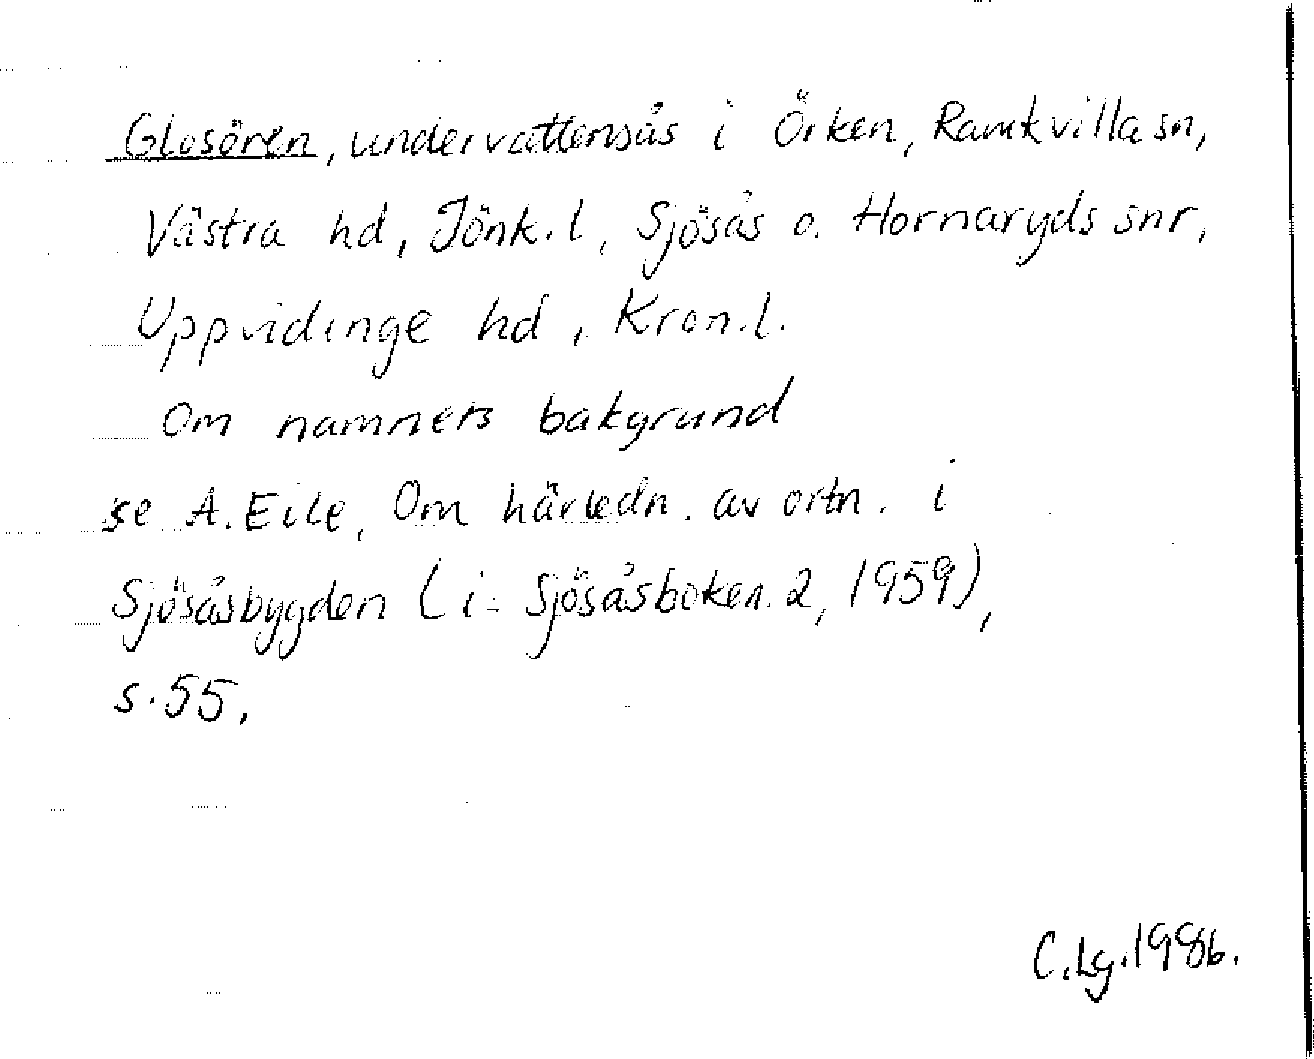 Glosören, undervattensås i Örken, Ramkvilla sn,
Västra hd, Jönk. l, Sjösås o. Hornaryds snr,
Uppvidinge hd, Kron. l.
Om namnets bakgrund
se A. Eile, Om härledn. av ortn. i
Sjösåsbygden (i: Sjösåsboken. 2, 1959),
s. 55.
C.Lg. 1986.